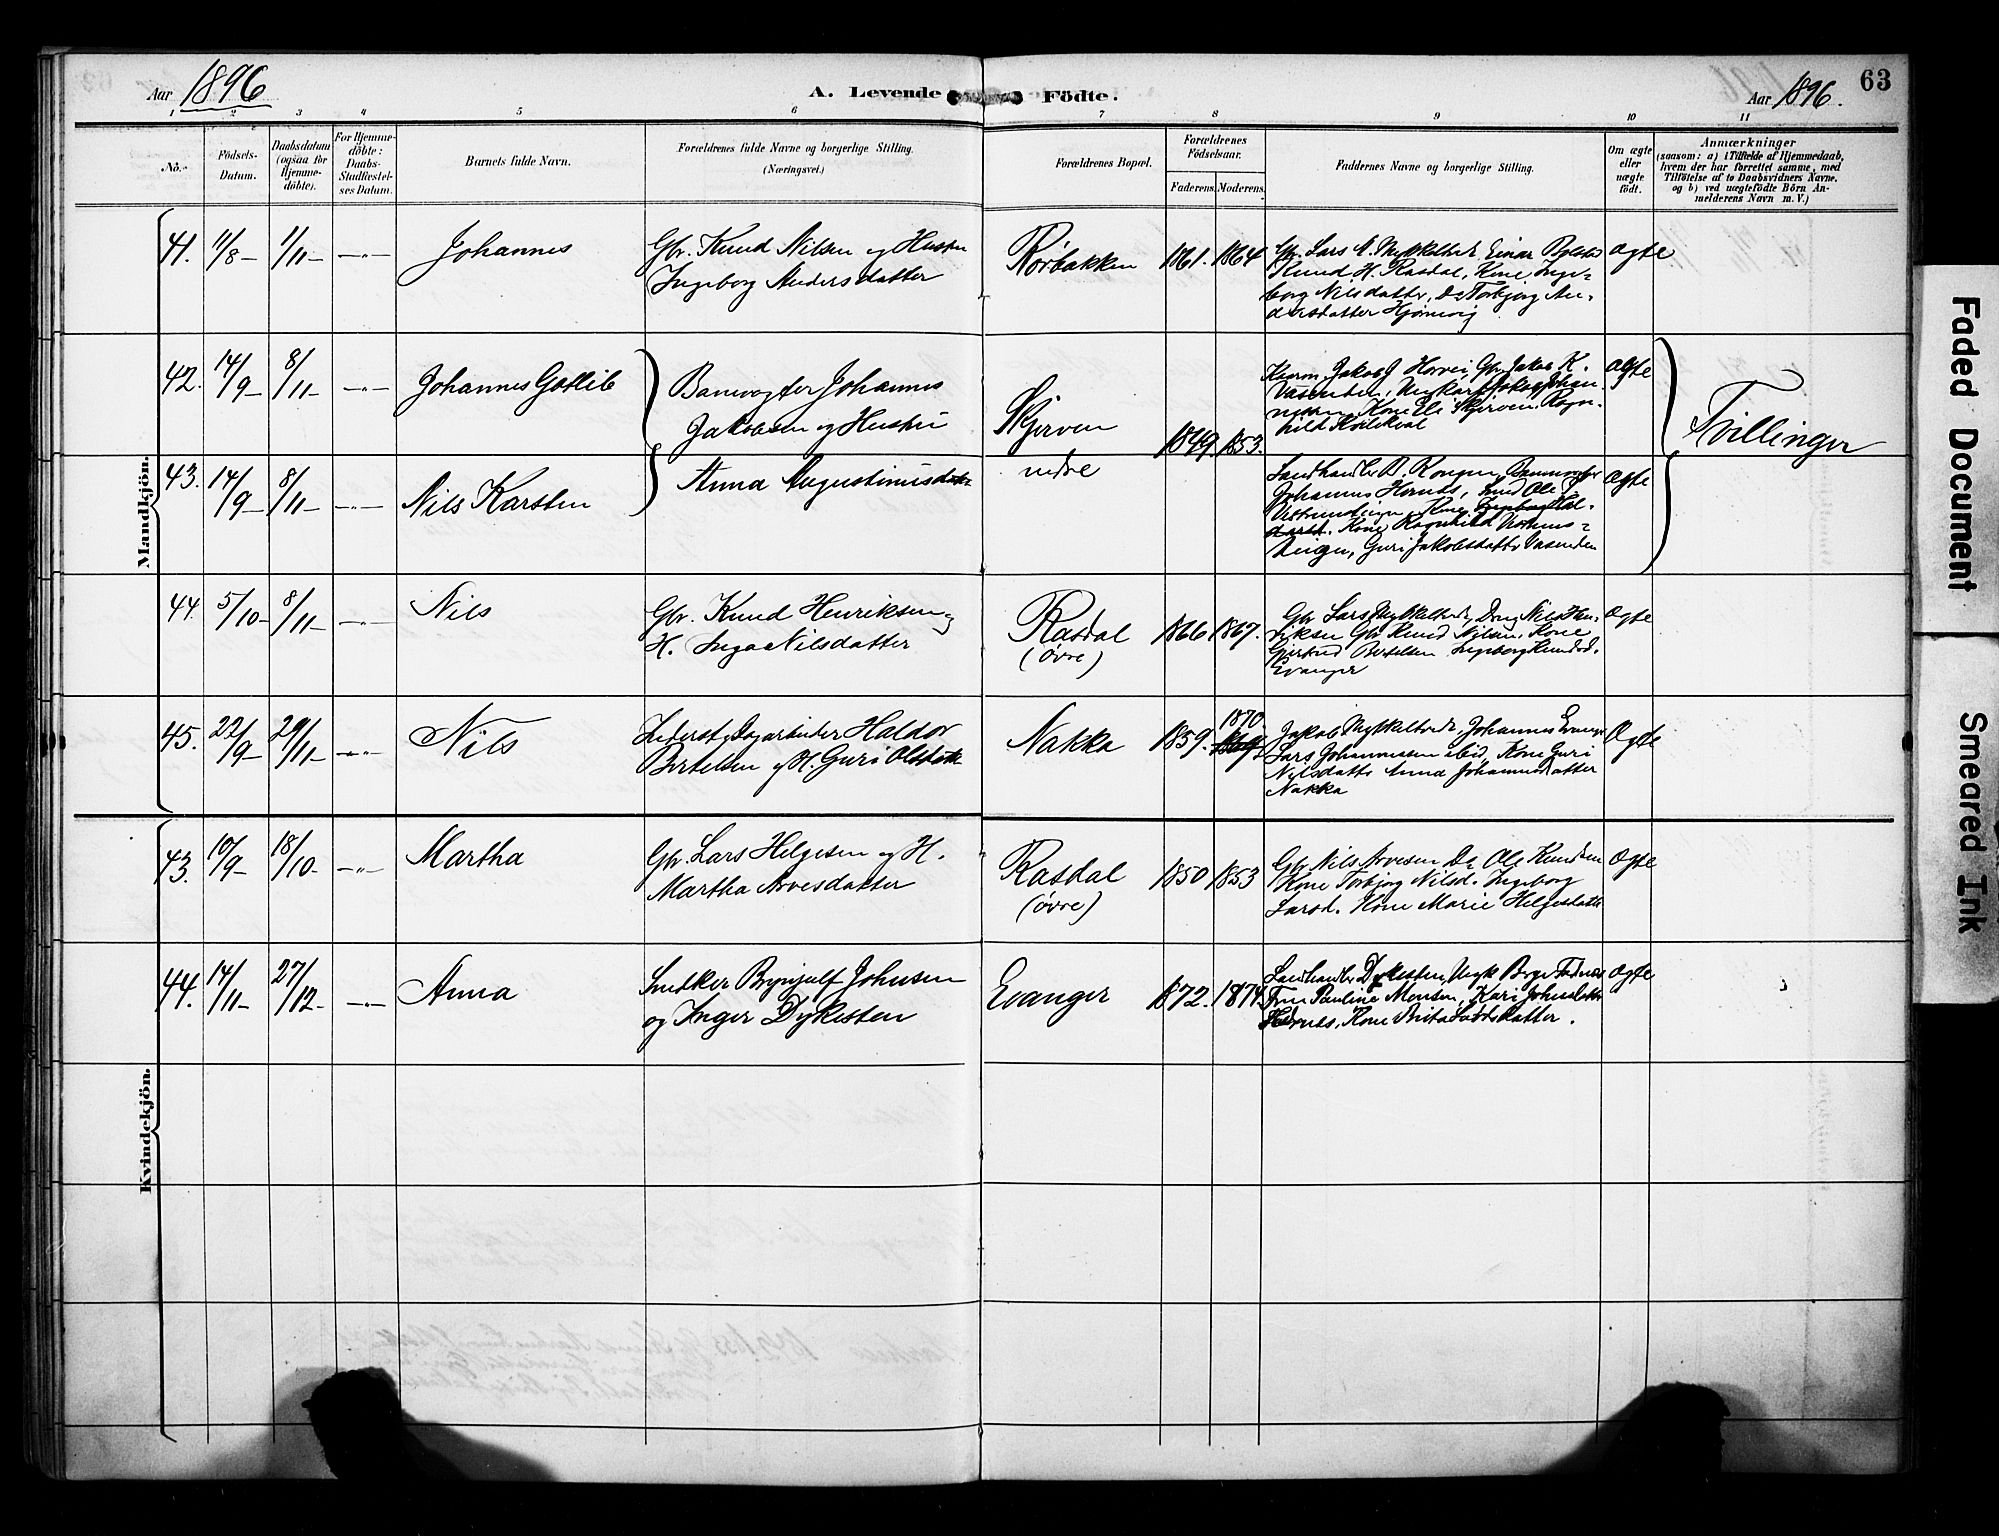 Aar 1896
A. Levende Födte.
Aar 1896.
63
1 2 3 4 5 6 7 8 9 10 11
No.
Födsels-
Datum.
Daabsdatum
(ogsaa for
Hjemme-
döbte).
For Hjemme-
döbte:
Daabs-
Stadfæstel-
ses Datum.
Barnets fulde Navn.
Forældrenes fulde Navne og borgerlige Stilling.
(Næringsvei.)
Forældrenes Bopæl.
Forældrenes
Födselsaar.
Faderens.
Moderens.
Faddernes Navne og borgerlige Stilling.
Om ægte
eller
uægte
födt.
Anmærkninger
(saasom: a) i Tilfælde af Hjemmedaab,
hvem der har forrettet samme, med
Tilföielse af to Daabsvidners Navne.
og b) ved uægtefödte Börn An-
melderens Navn m. V.)
Mandkjön.
41. 11/8 1/11 Johannes
Gbr. Knud Nilsen og Hustru
Ingeborg Andersdatter
Rørbakken 1861. 1864
Gbr. Lars N. Mykkeltvedt, Einar
Knud H. Rasdal, Kone Inge-
borg Nilsdatter, Do Torbjørg An-
dersdatter
Ægte
42. 14/9 8/11 Johannes Gotlib
Banevogter Johannes
Jakobsen og Hustru
Skjerven
nedre
1849. 1853.
Jakob J Horvei, Gbr Jakob K.
Vasenden, Ungkarl Jakob Johan-
nesen Kone Eli Skjerven, Ragn-
hild
Ægte
Tvillinger
43. 14/9 8/11 Nils Karsten
Anna Augustinusdatter
Landhandler B. Rongen, Banevogter
Johannes Hernes, Smed Ole
Kone
Kone Ragnhild
Guri Jakobsdatter Vasenden
Ægte
44. 5/10 8/11 Nils
Gbr. Knud Henriksen og
H. Inga Nilsdatter
Rasdal
(øvre)
1866 1867.
Gbr Lars Mykkeltvedt, Dreng Nils Hen-
riksen Gbr Knud Nilsen, Kone
Gjertrud Bertelsen Ingeborg Knudsd.
Evanger
Ægte
45. 22/9 29/11 Nils
Inderst og Dagarbeider Haldor
Bertelsen og H. Guri Olsdatter
Nakka 1859. 1870.
1869
Jakob Mykkeltvedt, Johannes Evanger
Lars Johannesen ibid, Kone Guri
Nilsdatter Anna Johannesdatter
Nakka
Ægte
Kvindekjön.
43. 10/9 18/10 Martha
Gbr. Lars Helgesen og H.
Martha Arvesdatter
Rasdal
(øvre)
1850 1853
Gbr Nils Arvesen Do Ole Knudsen
Kone Torbjørg Nilsd. Ingeborg
Larsd. Kone Marie Helgesdatter
Ægte
44. 14/11 27/12 Anna
Snedker Brynjulf Johnsen
og Inger Dykesten
Evanger 1872. 1874.
Landhandler Dykesten, Ungk Børge
Frue Pauline Monsen, Kari Johnsdatter
Hernes, Kone Brita
Ægte
Faded Document
Smeared Ink